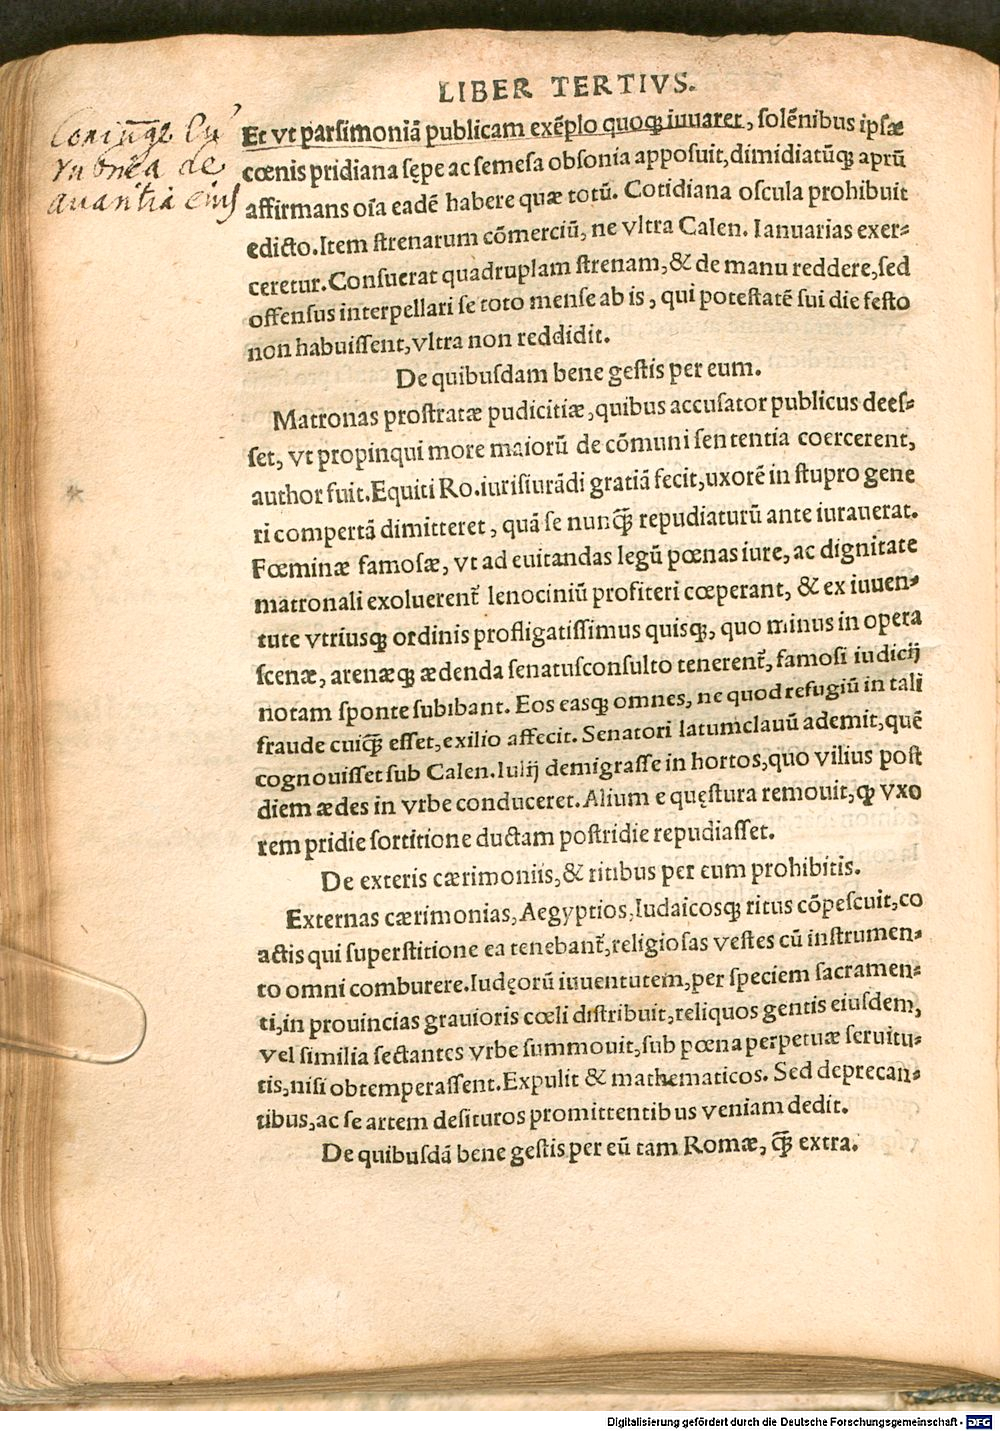 LIBER TERTIVS.
Coniūge cū
rubrica de
auaritia eius
Et vt parsimoniā publicam exēplo quoqꝫ iuuaret, solēnibus ipsæ
cœnis pridiana sępe ac semesa obsonia apposuit,dimidiatūqꝫ aprū
affirmans oīa eadē habere quæ totū. Cotidiana oscula prohibuit
edicto.Item strenarum cōmerciū, ne vltra Calen. Ianuarias exer-
ceretur.Consuerat quadruplam strenam,& de manu reddere,sed
offensus interpellari se toto mense ab is, qui potestatē sui die festo
non habuissent,vltra non reddidit.
De quibusdam bene gestis per eum.
Matronas prostratæ pudicitiæ,quibus accusator publicus dees-
set, vt propinqui more maiorū de cōmuni sententia coercerent,
author fuit.Equiti Ro.iurisiurādi gratiā fecit,uxorē in stupro gene
ri compertā dimitteret, quā se nunꝙ̄ repudiaturū ante iurauerat.
Fœminæ famosæ, vt ad euitandas legū pœnas iure, ac dignitate
matronali exoluerent᷑ lenociniū profiteri cœperant, & ex iuuen-
tute vtriusqꝫ ordinis profligatissimus quisqꝫ, quo minus in opera
scenæ, arenæqꝫ ædenda senatusconsulto tenerent᷑, famosi iudicij
notam sponte subibant. Eos easqꝫ omnes, ne quod refugiū in tali
fraude cuiꝙ̄ esset,exilio affecit. Senatori latumclauū ademit,quē
cognouisset sub Calen.Iulij demigrasse in hortos,quo vilius post
diem ædes in vrbe conduceret.Alium e quęstura remouit,ꝙ vxo
rem pridie sortitione ductam postridie repudiasset.
De exteris cærimoniis,& ritibus per eum prohibitis.
Externas cærimonias,Aegyptios,Iudaicosqꝫ ritus cōpescuit,co
actis qui superstitione ea tenebant᷑,religiosas vestes cū instrumen-
to omni comburere.Iudęorū iuuentutem,per speciem sacramen-
ti,in prouincias grauioris cœli distribuit,reliquos gentis eiusdem,
vel similia sectantes vrbe summouit,sub pœna perpetuæ seruitu-
tis,nisi obtemperassent.Expulit & mathematicos. Sed deprecan-
tibus,ac se artem desituros promittentibus veniam dedit.
De quibusdā bene gestis per eū tam Romæ, ꝙ̄ extra.
Digitalisierung gefördert durch die Deutsche Forschungsgemeinschaft - DFG